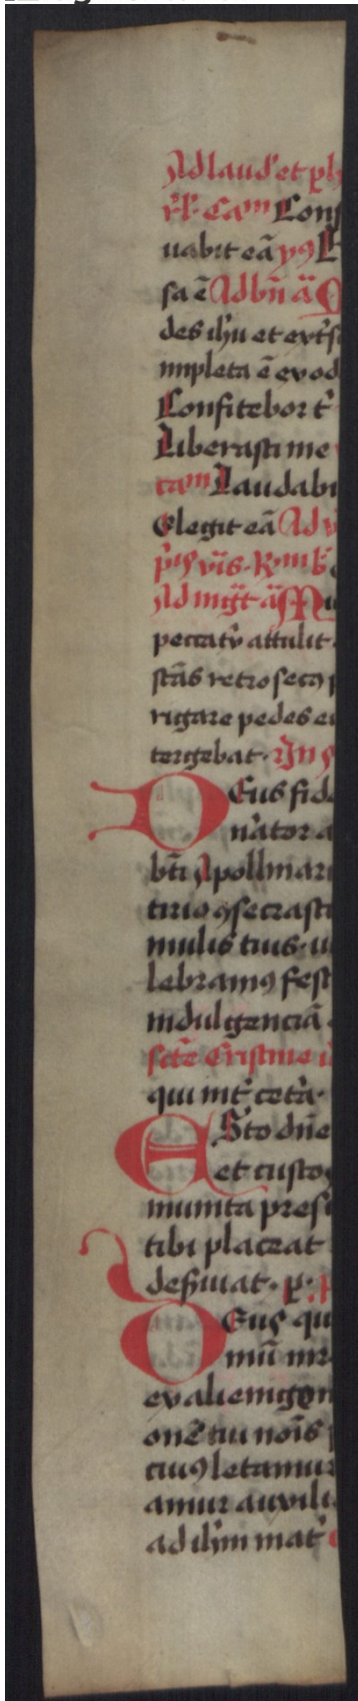 Ad laud' et p
Cam Conf
uabit eā p9 E
sa ē Ad bn̄ a
des ih'u et ext's
impleta ē ex od
Confitebor t'
Liberasti me
Laudabi
Elegit eā Ad v
Ad mḡt ā M
peccatū attulit
stās retro secꝯ p
rigare pedes ei
tergebat. In
Deus fid
nator a
bt̄i Apollinari
tirio ꝯsecrasti
mulis tuis. u
lebramꝯ fest
indulgenciā
sc̄te Cristine
qui int' ceta.
Esto dn̄e
et custo
munita presi
tibi placeat
deseruiat. p.
Deus qu
mū mr
ex alienigen
onē tui nōis
cuiꝯ letamur
amur auxili
ad ih'm mat'